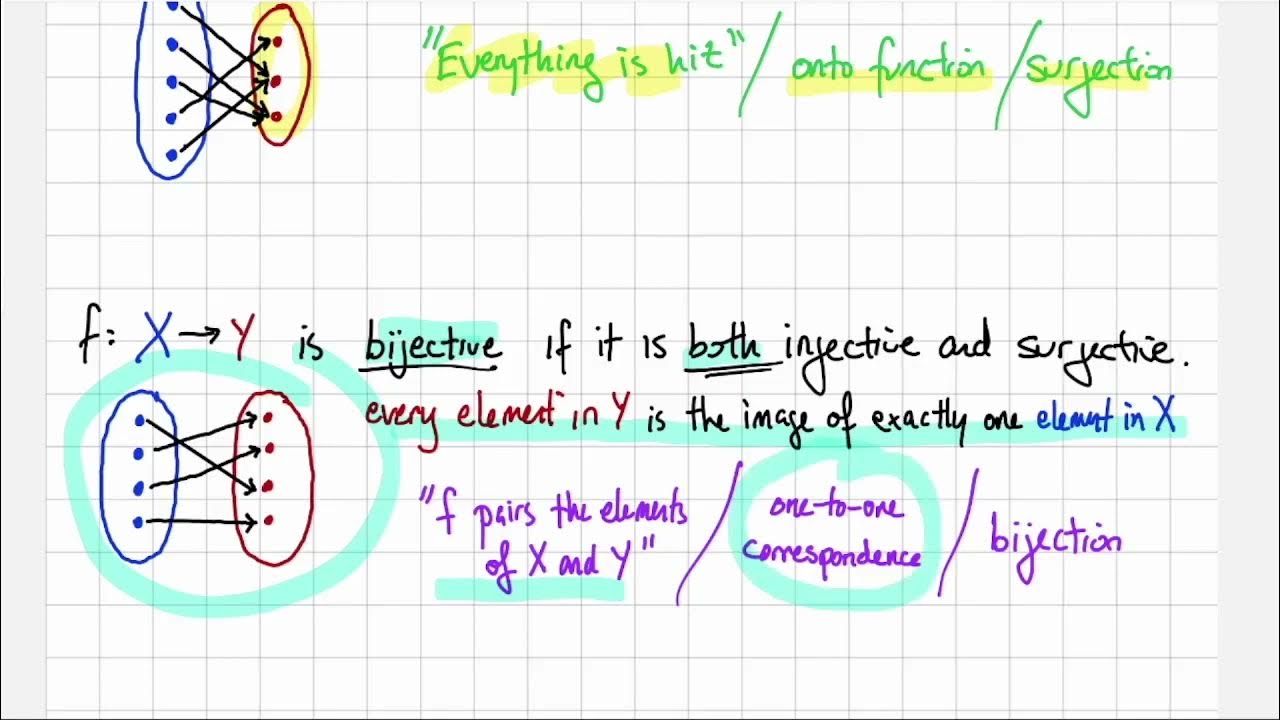 "Everything is hit" / onto function / surjection
f: X → Y is bijective if it is both injective and surjective.
every element in Y is the image of exactly one element in X
"f pairs the elements of X and Y" / one-to-one correspondence / bijection